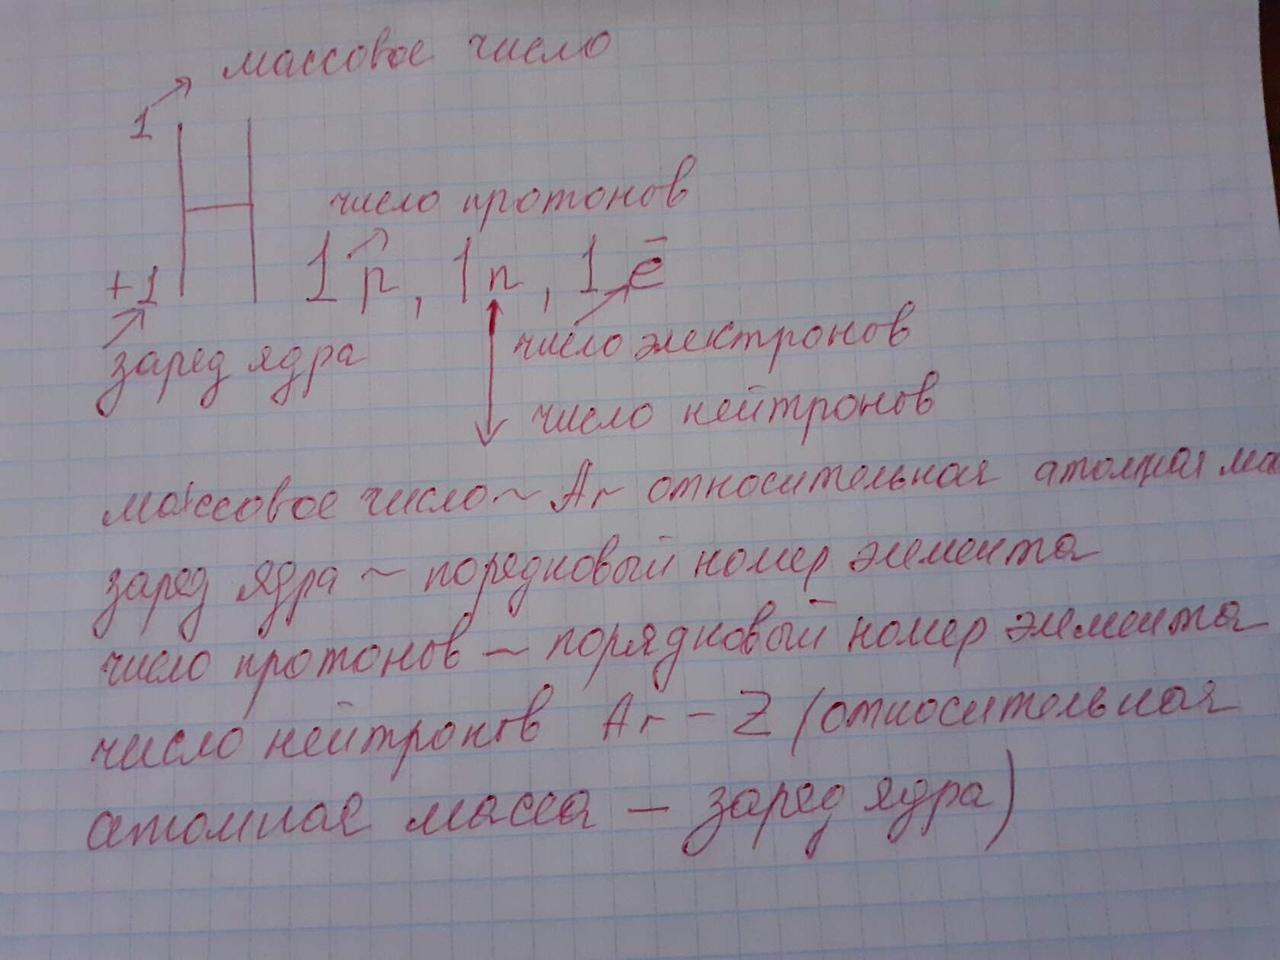 массовое число
1
H
число протонов
+1 1p, 1n, 1ē
заред ядра
число электронов
число нейтронов
массовое число ~ Ar относительная атомная ма
заред ядра ~ порядковый номер элемента
число протонов ~ порядковый номер элемента
число нейтронов Ar - Z (относительная
атомная масса - заред ядра)